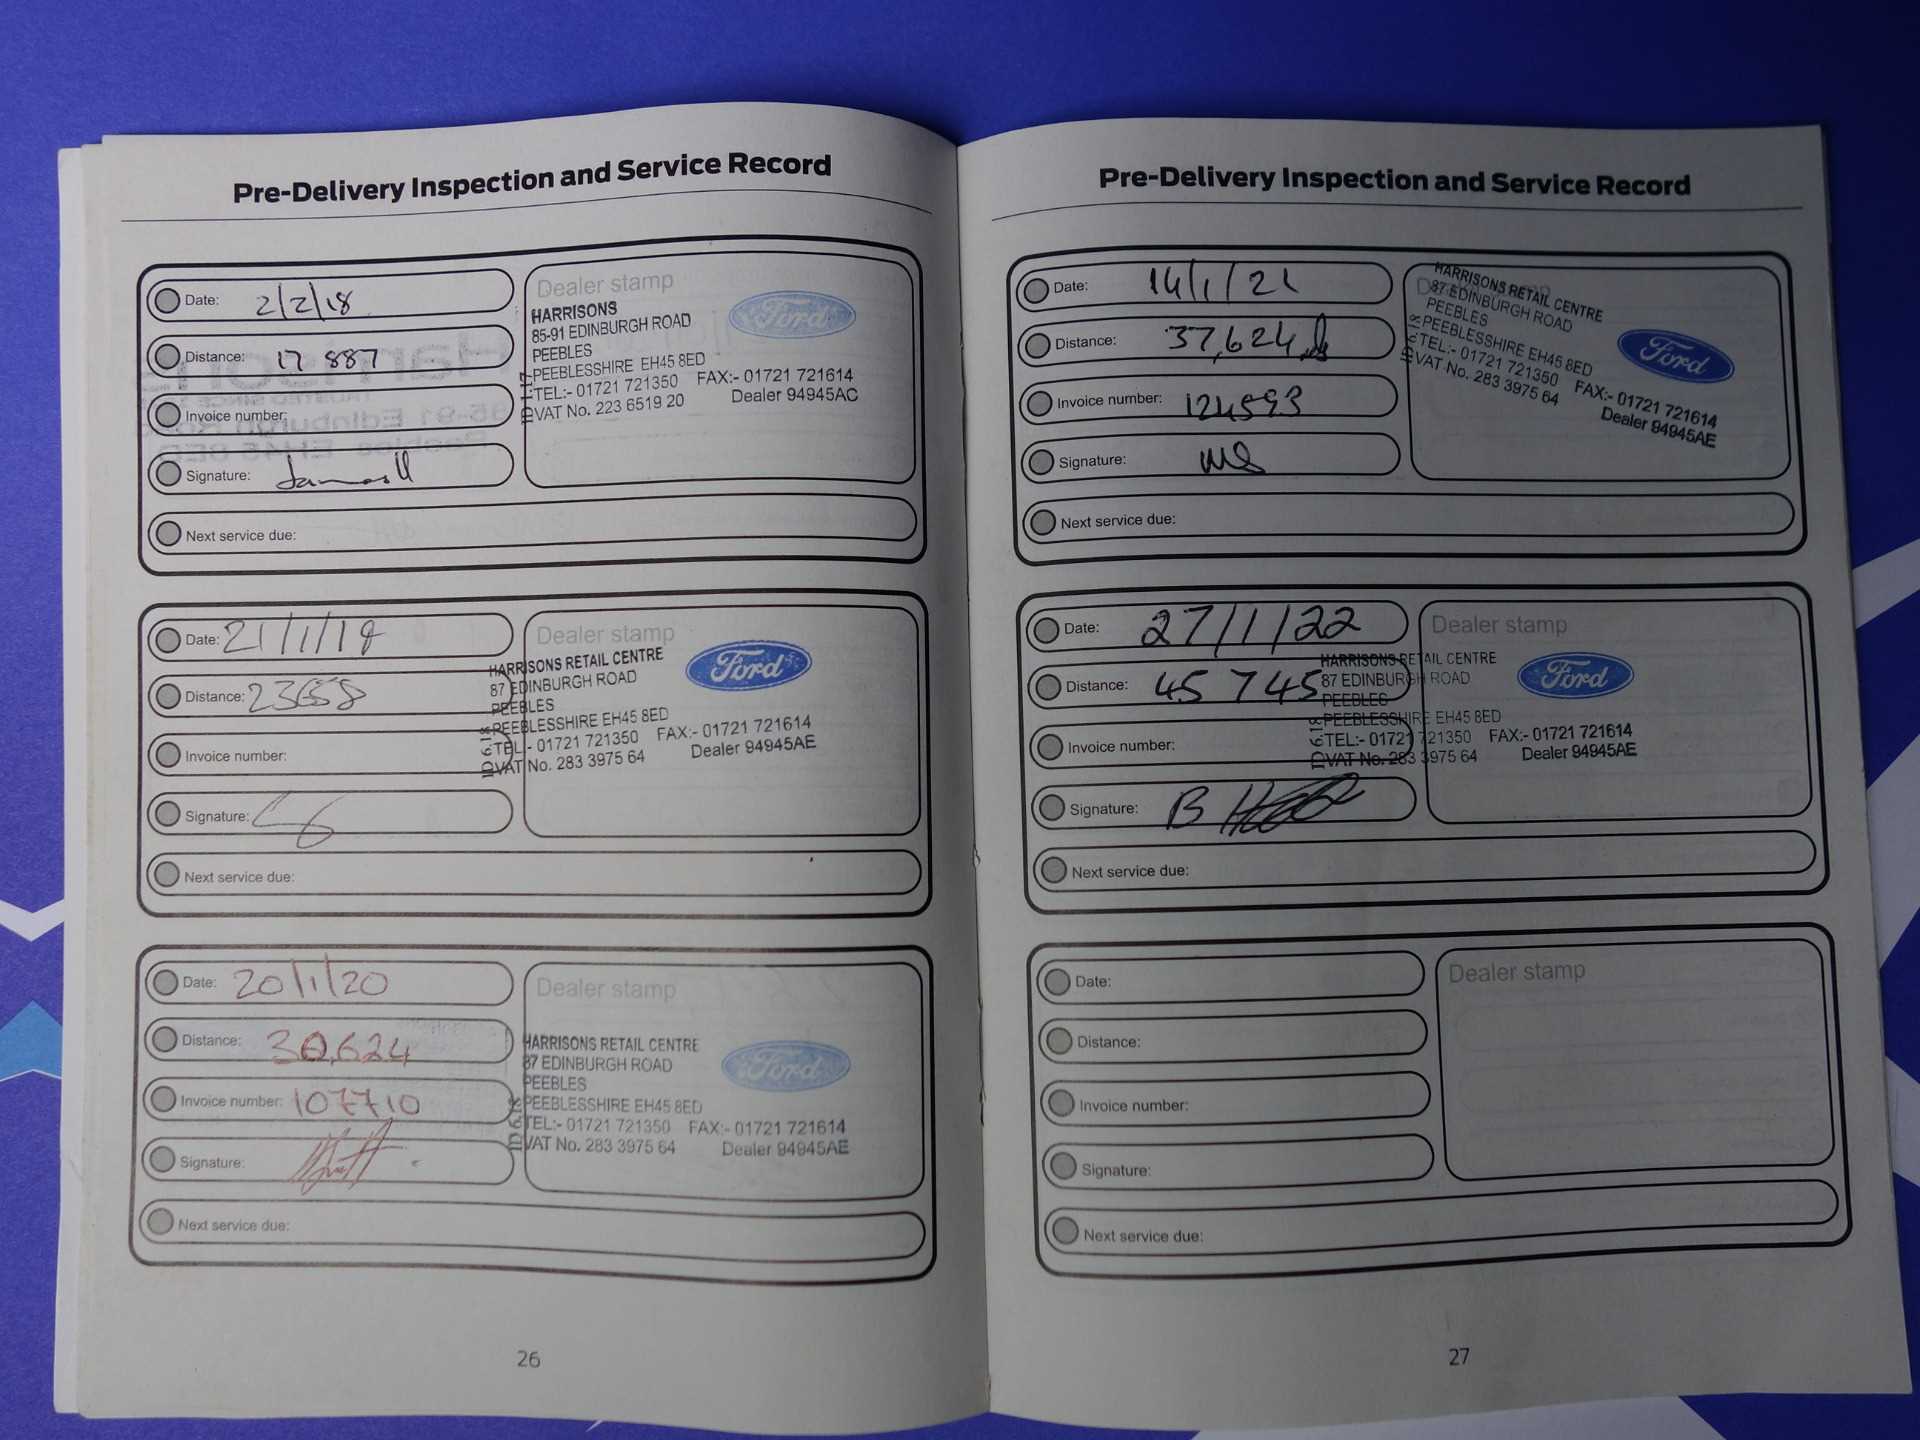 Pre-Delivery Inspection and Service Record
Date: 2/2/18
Distance: 17 887
Invoice number:
Signature:
Next service due:
Dealer stamp
Ford
HARRISONS
85-91 EDINBURGH ROAD
PEEBLES
PEEBLESSHIRE EH45 8ED
TEL:- 01721 721350 FAX:- 01721 721614
VAT No. 223 6519 20 Dealer 94945AC
ID 1:17
Date: 21/1/19
Distance: 23658
Invoice number:
Signature:
Next service due:
Dealer stamp
Ford
HARRISONS RETAIL CENTRE
87 EDINBURGH ROAD
PEEBLES
PEEBLESSHIRE EH45 8ED
TEL:- 01721 721350 FAX:- 01721 721614
VAT No. 283 3975 64 Dealer 94945AE
ID 6:18
Date: 20/1/20
Distance: 30,624
Invoice number: 107710
Signature:
Next service due:
Dealer stamp
Ford
HARRISONS RETAIL CENTRE
87 EDINBURGH ROAD
PEEBLES
PEEBLESSHIRE EH45 8ED
TEL:- 01721 721350 FAX:- 01721 721614
VAT No. 283 3975 64 Dealer 94945AE
ID 6:18
26
Pre-Delivery Inspection and Service Record
Date: 14/1/21
Distance: 37,624
Invoice number: 124593
Signature:
Next service due:
Dealer stamp
Ford
HARRISONS RETAIL CENTRE
87 EDINBURGH ROAD
PEEBLES
PEEBLESSHIRE EH45 8ED
TEL:- 01721 721350 FAX:- 01721 721614
VAT No. 283 3975 64 Dealer 94945AE
ID 6:18
Date: 27/1/22
Distance: 45 745
Invoice number:
Signature: B
Next service due:
Dealer stamp
Ford
HARRISONS RETAIL CENTRE
87 EDINBURGH ROAD
PEEBLES
PEEBLESSHIRE EH45 8ED
TEL:- 01721 721350 FAX:- 01721 721614
VAT No. 283 3975 64 Dealer 94945AE
ID 6:18
Date:
Distance:
Invoice number:
Signature:
Next service due:
Dealer stamp
27